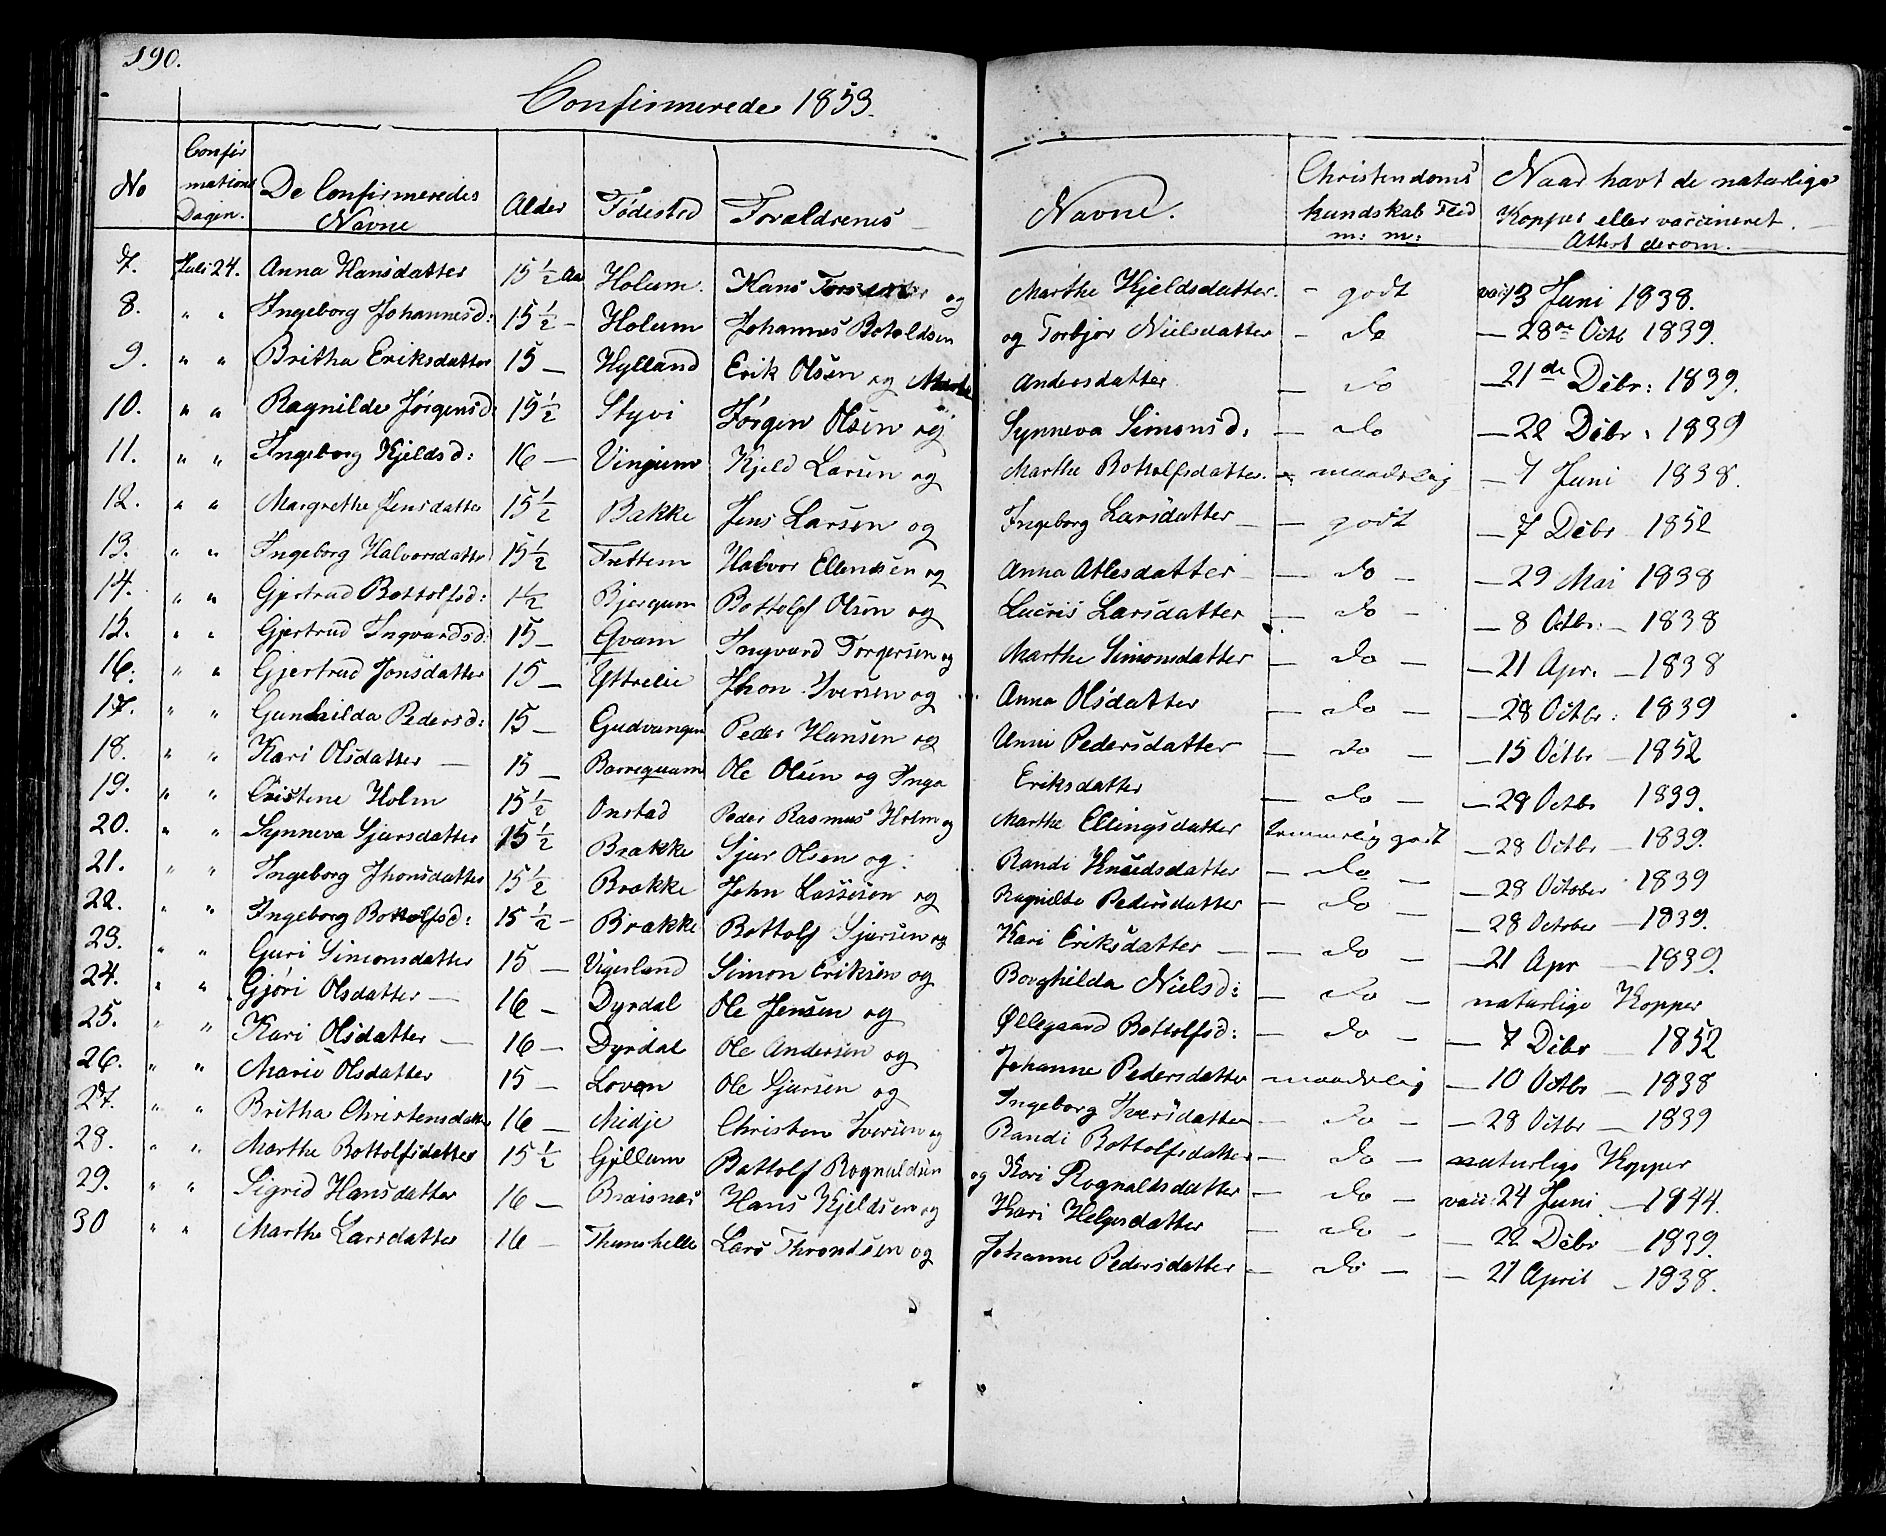 190.
Confirmerede 1853.
No Confirmations Dagen. De Confirmeredes Navne Alder Fødested Forældrenes Navne. Christendoms kundskab Flid m: m: Naar havt de naturlige Kopper eller vaccineret. Attest derom.
7. Juli 24. Anna Hansdatter 15 1/2 Aa Holum. Hans og Marthe Kjeldsdatter. - godt vac: 13 Juni 1838.
8. " " Ingeborg Johannesd: 15 1/2 - Holum Johannes Botoldsen og Torbjør Nielsdatter - do — 28de Octb 1839.
9. " " Britha Eriksdatter 15 — Hylland Erik Olsen og Marthe Andersdatter — do — 21de Debr: 1839.
10. " " Ragnilde Jørgensd: 15 1/2 Styvi Jørgen Olsen og Synneva Simonsd: — do — 22 Debr: 1839
11. " " Ingeborg Kjeldsd: 16 — Vinjum Kjeld Larsen og Marthe Bottolfsdatter. - maadelig — 7 Juni 1838.
12. " " Margrethe Jensdatter 15 1/2 Bakke Jens Larsen og Ingeborg Larsdatter — — godt — 7 Debr 1852
13. " " Ingeborg Halvorsdatter 15 1/2 Frettem Halvor Ellendsen og Anna Atlesdatter — — do — — 29 Mai 1838
14. " " Gjertrud Bottolfsd: 1 1/2 Bjergum Bottolf Olsen og Lucris Larsdatter — do - — 8 Octbr: — 1838
15. " " Gjertrud Ingvardsd: 15 — Qvam Ingvard Torgersen og Marthe Simonsdatter — do — — 21 Apr. — 1838
16. " " Gjertrud Jonsdatter 15 — Yttrelie Jhon Iversen og Anna Olsdatter — do — — 28 Octbr: 1839
17. " " Gunhilda Pedersd: 15 — Gudvangen Peder Hansen og Unni Pedersdatter — do — — 15 Octbr — 1852
18. " " Kari Olsdatter — 15 — Barrequam Ole Olsen og Inga Eriksdatter — do — — 28 Octbr 1839.
19. " " Cristene Holm 15 1/2 Onstad Peder Rasmus Holm og Marthe Ellingsdatter temmelig godt — 28 Octbr — 1839.
20. " " Synneva Sjursdatter 15 1/2 Brække Sjur Olsen og Randi Knudsdatter — do — — 28 October 1839
21. " " Ingeborg Jhonsdatter 15 1/2 Brække John Lassesen og Ragnilde Pedersdatter — do — — 28 October — 1839.
22. " " Ingeborg Bottolfsd: 15 1/2 - Brække Bottolf Sjursen og Kari Eriksdatter — — do — — 21 Apr — 1839.
23. " " Guri Simonsdatter 15 — Vigerland Simon Eriksen og Borghilda Nielsd: — do — naturlige Kopper
24. " " Gjøri Olsdatter — 16 — Dyrdal Ole Jensen og Øllegaard Bottolfsd: — do — — 7 Debr — 1852
25. " " Kari Olsdatter — 16 — Dyrdal Ole Andersen og Johanne Pedersdatter — maadelig — 10 Octbr — 1838
26. " " Marie Olsdatter 15 — Loven Ole Sjursen og Ingeborg Iversdatter — do — — 28 Octbr — 1839
27. " " Britha Christensdatter 16 — Midje Christen Iversen og Randi Bottolfsdatter — do — naturlige Kopper
28. " " Marthe Bottolfsdatter 15 1/2 Gjellum Bottolf Rognaldsen og Kari Rognaldsdatter — do — vacc: 24 Juni — 1844.
29. " " Sigrid Hansdatter 16 — Braisnæs Hans Kjeldsen og Kari Helgesdatter — do — — 22 Debr — 1839.
30 " " Marthe Larsdatter 16 — Thunshelle Lars Throndsen og Johanne Pedersdatter — do — — 21 April — 1838.